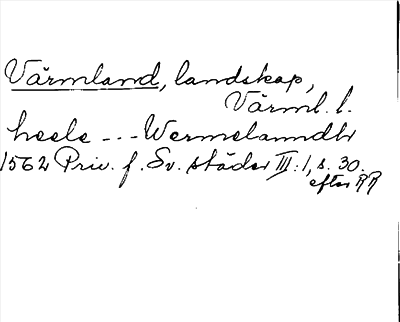 Värmland, landskap,
Värml. l.
heele - - - Wermelanndh
1562 Priv. f. Sv. städer III:1, s. 30.
efter RR